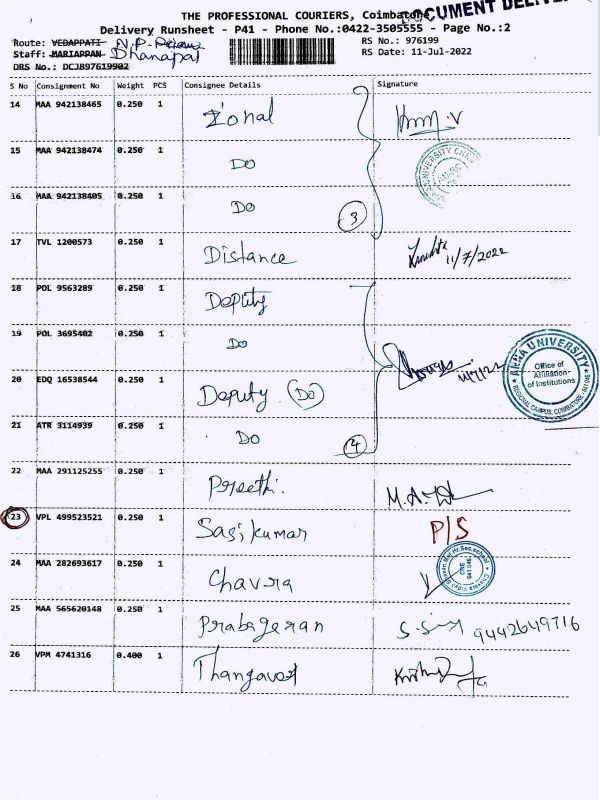 DOCUMENT DELIVE
THE PROFESSIONAL COURIERS, Coimbatore
Delivery Runsheet - P41 - Phone No.:0422-3505555 - Page No.:2
Route: VEDAPPATI N.P.
RS No.: 976199
Staff: MARIAPPAN Dhanapal
RS Date: 11-Jul-2022
DRS No.: DCJB97619902
S No Consignment No Weight PCS Consignee Details Signature
14 MAA 942138465 0.250 1 Zonal
15 MAA 942138474 0.250 1 DO
16 MAA 942138405 0.250 1 DO
3
17 TVL 1200573 0.250 1 Distance 11/7/2022
18 POL 9563289 0.250 1 Deputy
19 POL 3695402 0.250 1 DO
20 EDQ 16538544 0.250 1 Deputy (DO)
ANNA UNIVERSITY
Office of
Affiliation
of Institutions
REGIONAL CAMPUS, COIMBATORE
21 ATR 3114939 0.250 1 DO
4
22 MAA 291125255 0.250 1 Preethi. M.A.
23 VPL 499523521 0.250 1 Sasikumar P/S
24 MAA 282693617 0.250 1 Chavra
25 MAA 565620148 0.250 1 Prabageran 9442649716
26 VPM 4741316 0.400 1